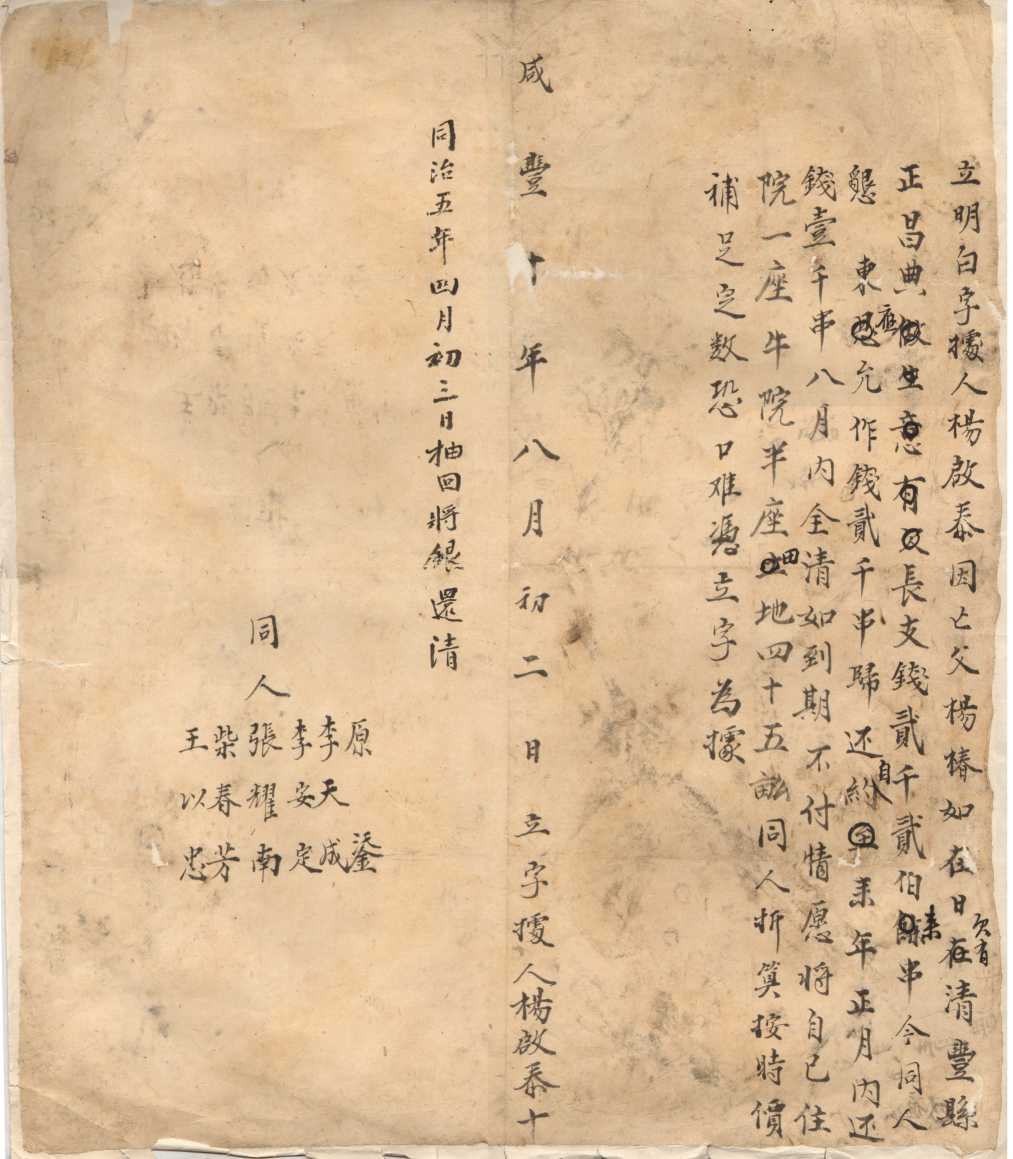 立明白字據人楊啟泰因亡父楊椿如在日在清豐縣
欠有
正昌典做生意有又長支錢貳千貳伯餘串今同人
来
懇東恩允作錢貳千串歸还約至来年正月内还
應
自人
錢壹千串八月内全清如到期不付情愿将自已住
院一座牛院半座土地四十五畝同人折算按時價
田
補足定数恐口难憑立字為據
咸豐十年八月初二日立字據人楊啟泰十
同治五年四月初三日抽回將銀還清
同人
原
李天成
李安定
張耀南
柴春芳
王以忠